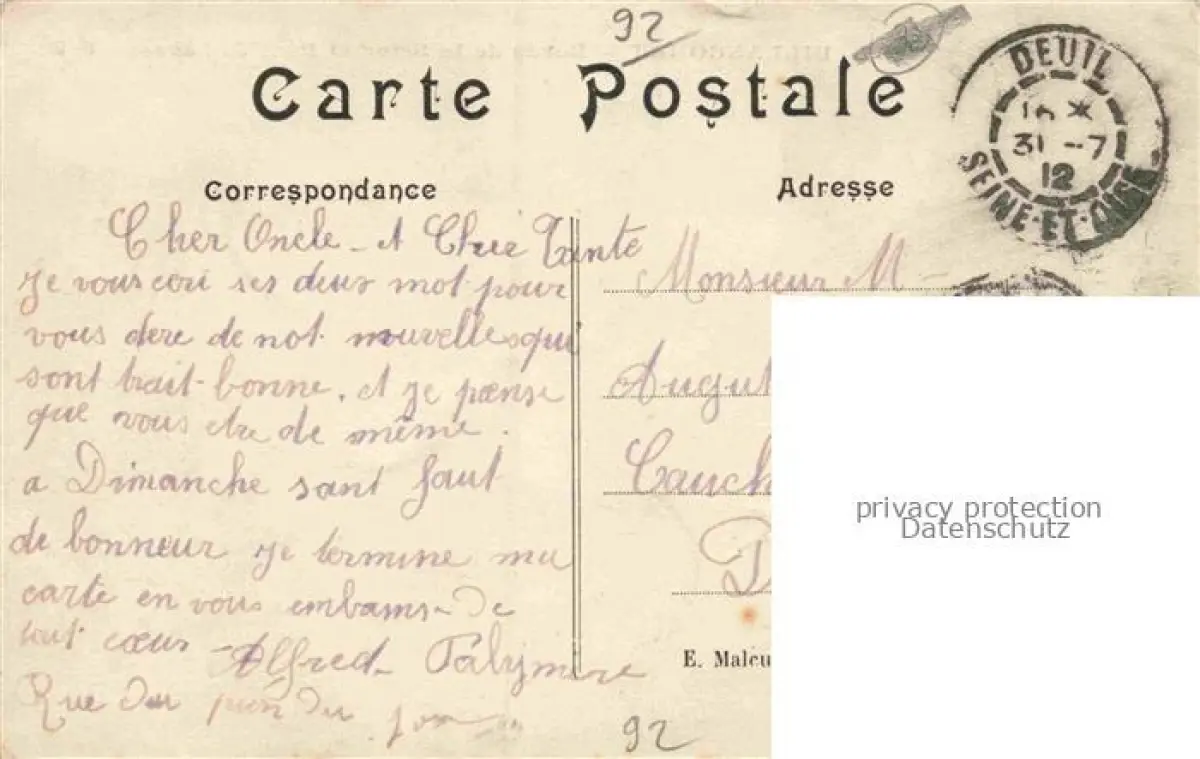 92
Carte Postale
DEUIL
31 - 7
12
SEINE-ET-OISE
Correspondance
Adresse
Cher Oncle - et Chere Tante
Je vous ecri ses deux mot pour
vous dere de not nouvelles qui
sont trait-bonne. et je pense
que vous etre de même.
a Dimanche sant faut
de bonneur Je termine ma
carte en vous embams- de
tout cœur - Alfred
Rue du
Monsieur M -
Augut
Cauch
E. Malcu
privacy protection
Datenschutz
92